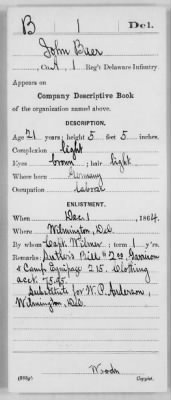 B 1 Del.
John Buer
, Co. A, 1 Reg't Delaware Infantry.
Appears on
Company Descriptive Book
of the organization named above.
DESCRIPTION.
Age 21 years; height 5 feet 5 inches.
Complexion light
Eyes brown; hair light
Where born Germany
Occupation laborer
ENLISTMENT.
When Dec. 1, 1864.
Where Wilmington, Del.
By whom Capt. Wilmer; term 1 y'rs.
Remarks: Sutler's Bill $2.00, Garrison
& Camp Equipage 2.15. Clothing
acct. 75.85.
Substitute for W. P. Anderson,
Wilmington, Del.
Woods
Copyist.